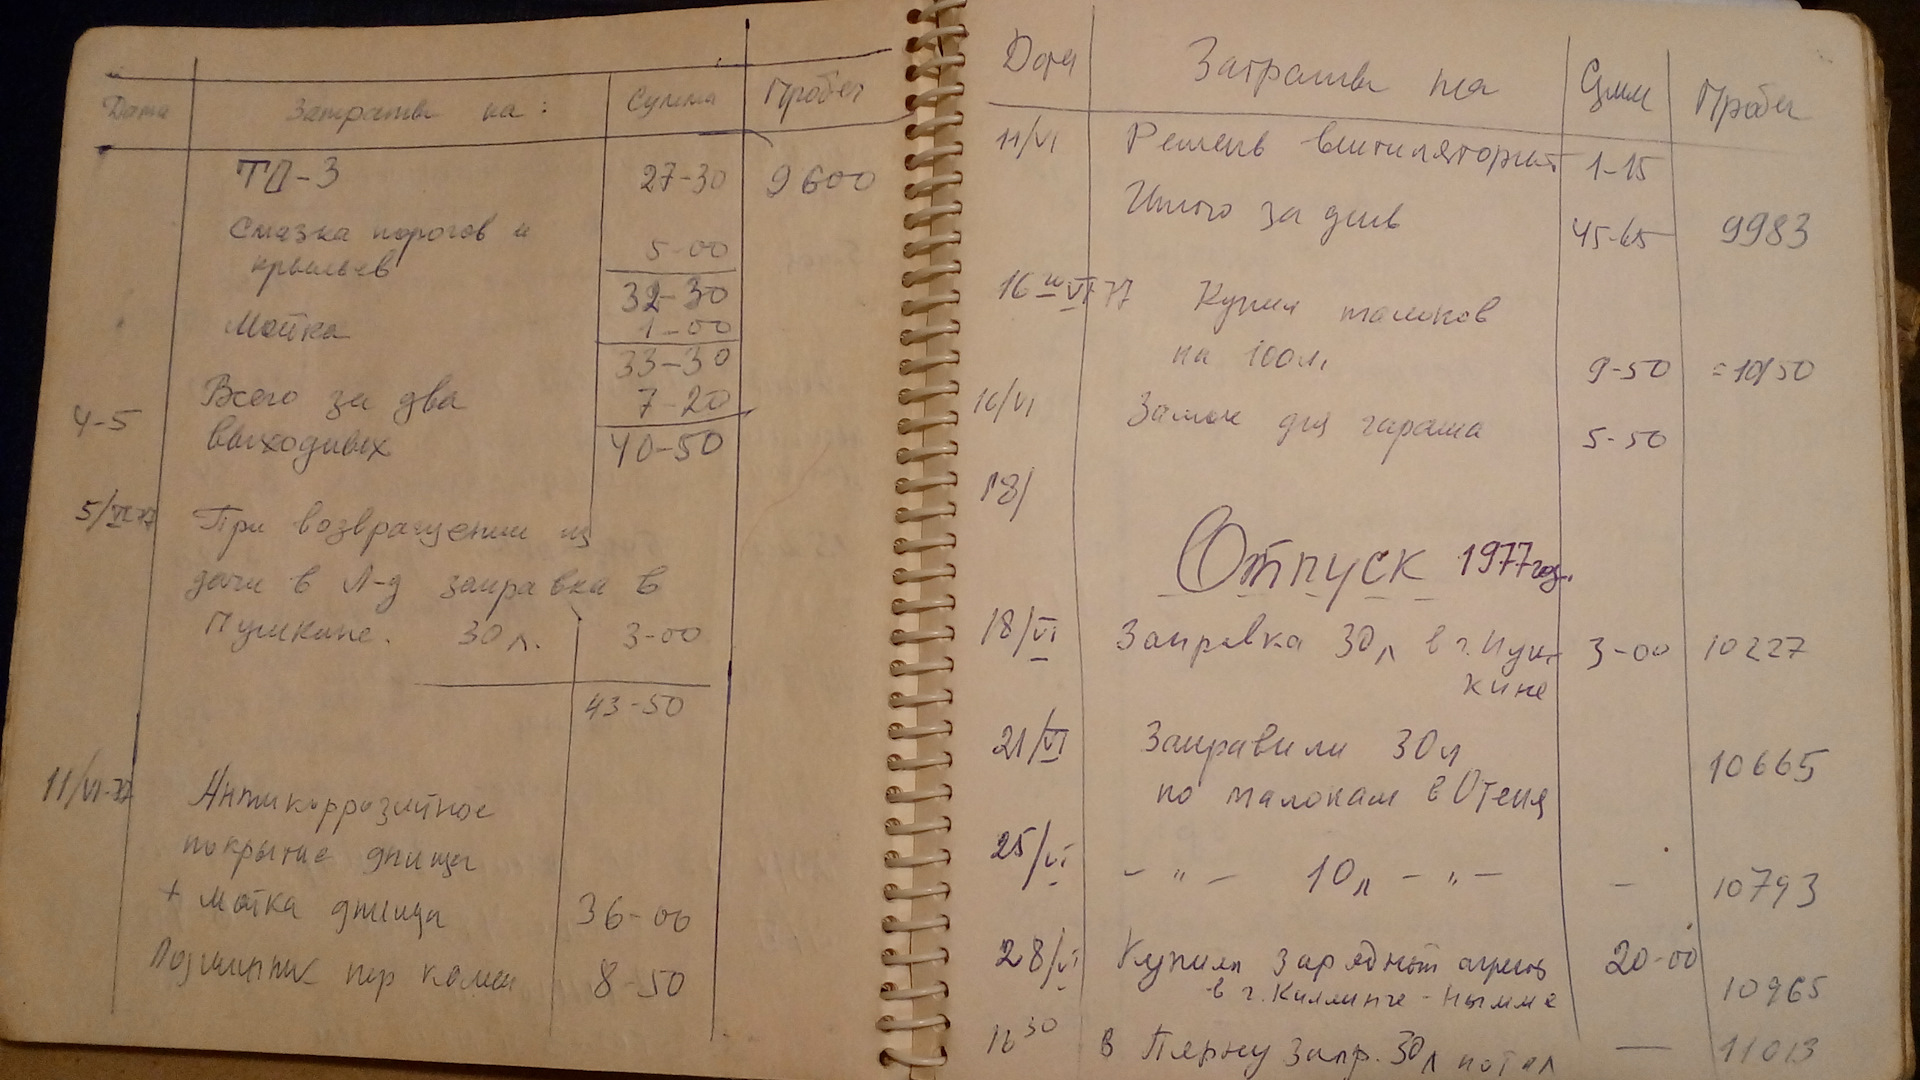 Дата Затраты на: Сумма Пробег
ТО-3 27-30 9600
Смазка порогов и
крыльев 5-00
32-30
Мойка 1-00
33-30
Всего за два 7-20
4-5 выходных 40-50
5/VI 77 При возвращении из
дачи в Л-д заправка в
Пушкине. 30 л. 3-00
43-50
11/VI-77 Антикоррозийное
покрытие днища
+ мойка днища 36-00
Подшипник пер колеса 8-50
Дата Затраты на Сумм Пробег
11/VI Ремень вентиляторный 1-15
Итого за день 45-65 9983
16 VI 77 Купил талонов
на 100 л. 9-50 = 10150
16/VI Замок для гаража 5-50
18/
Отпуск 1977 год.
18/VI Заправка 30 л в г. Пуш-
кине 3-00 10227
21/VI Заправили 30 л
по талонам в Отепя 10665
25/VI - " - 10 л - " - - 10793
28/VI Купили зарядный агрегат 20-00
в г. Килинги-Нымме 10965
16 30 в Пярну запр. 30 л по тал — 11013